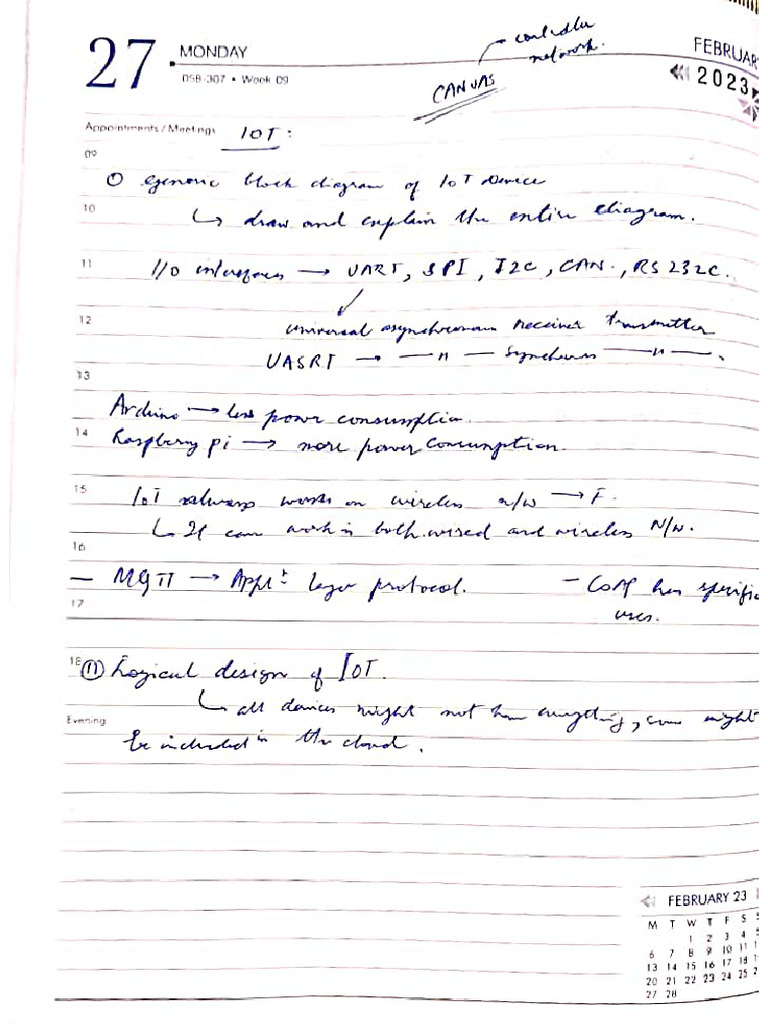 27 MONDAY
058-307 • Week 09
controller
network.
CANVAS
FEBRUAR
2023
Appointments / Meetings IOT :
09
① generic block diagram of IoT Device
10
↳ draw and explain the entire diagram.
11
I/O interfaces → UART, SPI, I2C, CAN, RS 232C.
12
universal asynchronous receiver transmitter
UASRT → —"— Synchronous —"—.
13
Arduino → less power consumption.
14
Raspberry pi → more power consumption.
15
IoT always works on wireless n/w → F.
↳ It can work in both wired and wireless N/w.
16
— MQTT → Appln layer protocol. – CoAP has specific
uses.
17
18
⑪ Logical design of IOT.
↳ all devices might not have everything, some might
Evening
be included in the cloud.
FEBRUARY 23
M T W T F S S
1 2 3 4 5
6 7 8 9 10 11 1
13 14 15 16 17 18 1
20 21 22 23 24 25 2
27 28